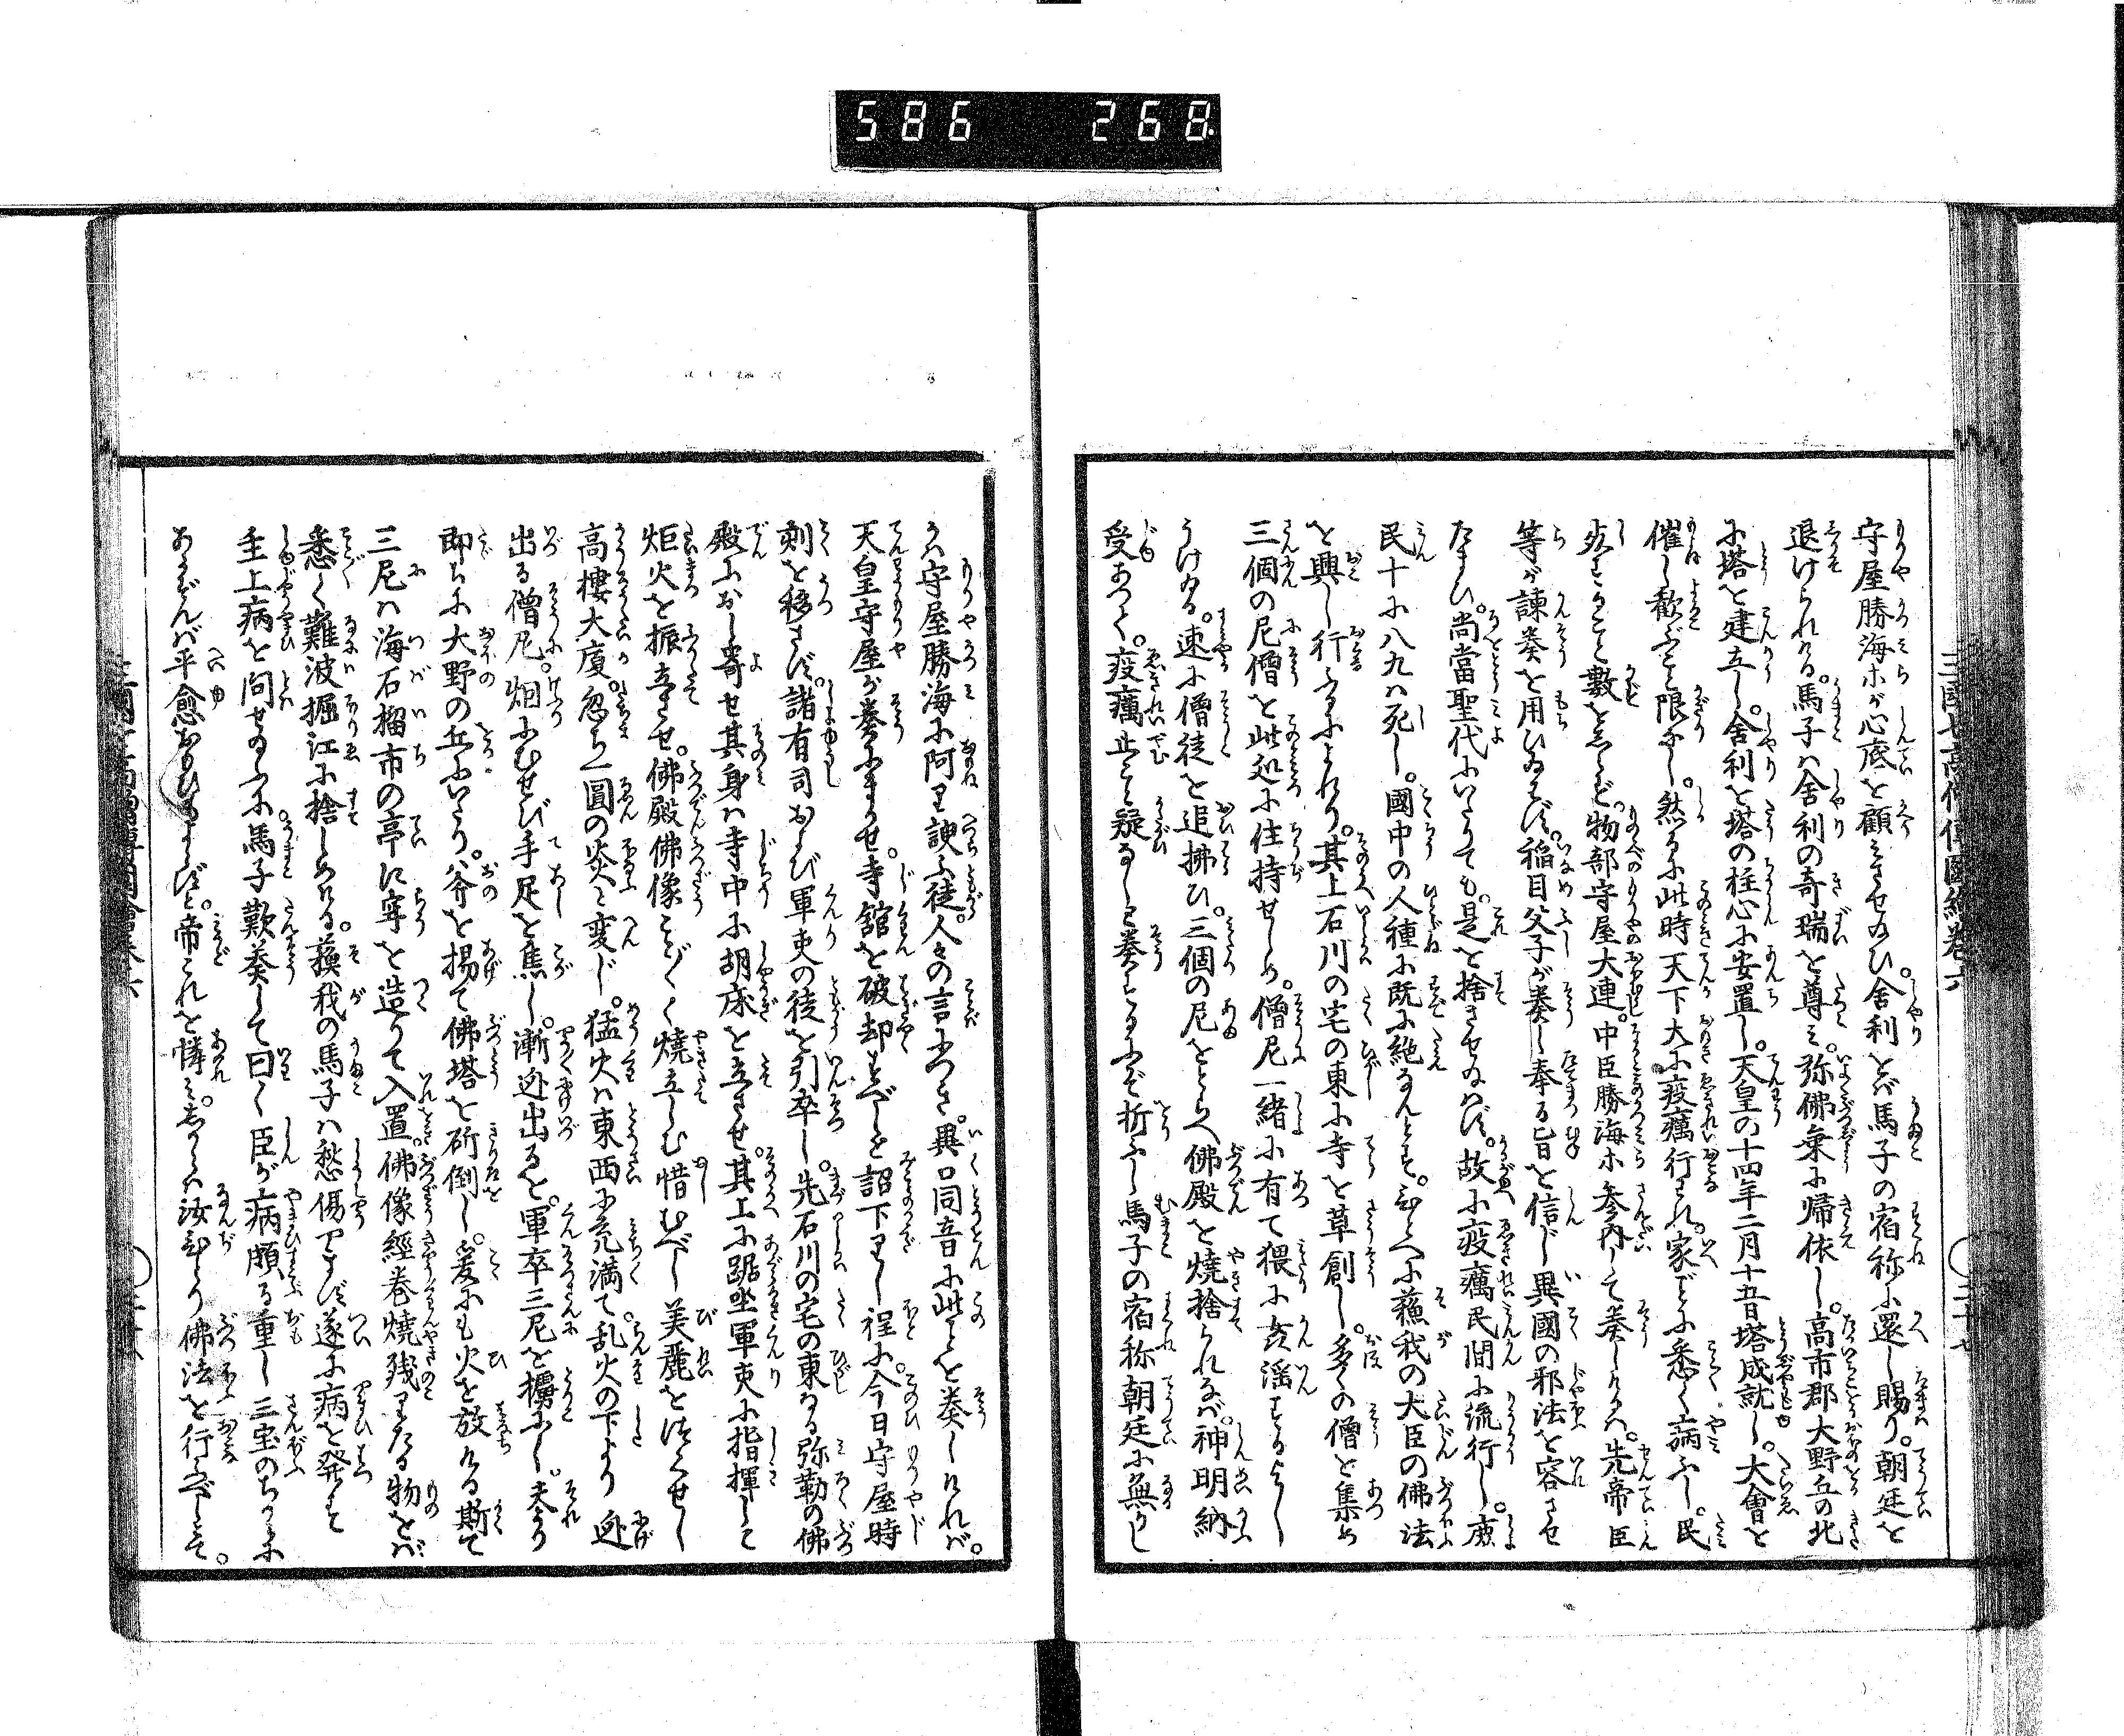 586 268
守屋勝海ホが心底を顧ミさせ給ひ。舎利をバ馬子の宿祢に還し賜り。朝廷を
退けられける。馬子ハ舎利の奇瑞を尊ミ。弥佛乗に帰依し。高市郡大野丘の北
に塔を建立し。舎利を塔の柱心に安置し。天皇の十四年二月十五日塔成就し。大會を
催し歓ぶこと限なし。然るに此時天下大に疫癘行はれ。家ごとに悉く病ふし。民
死すること数をしらず。物部守屋大連。中臣勝海ホ参内して奏しけるハ。先帝臣
等が諫奏を用ひ給はず。稲目父子が奏し奉る旨を信じ異國の邪法を容させ
たまひ。尚當聖代にいたりても。是を捨させ給はず。故に疫癘民間に流行し。庶
民十に八九ハ死し。國中の人種に既に絶なんとす。ひとへに蘓我の大臣の佛法
を興し行ふるによれり。其上石川の宅の東に寺を草創し。多くの僧を集め
三個の尼僧を此処に住持せしめ。僧尼一緒に有て猥に貪淫するよし
うけ給る。速に僧徒を追拂ひ。三個の尼をとらへ佛殿を焼捨られなバ。神明納
受あつて。疫癘止こと疑なしと奏するにぞ。折ふし馬子の宿祢朝廷に無かし
かハ守屋勝海に阿り諛ふ徒。人々の言につき。異口同音に此ことを奏しければ。
天皇守屋が奏にまかせ。寺舘を破却すべしと詔下りし程に。今日守屋時
刻を移さず。諸有司および軍吏の徒を引卒し。先石川の宅の東なる弥勒の佛
殿におし寄せ其身ハ寺中に胡床を立させ。其上に踞坐軍吏に指揮して
炬火を振立させ。佛殿佛像ことごとく焼立しむ惜むべし美麗をつくせし
高樓大廈。忽ち一圓の炎と変じ。猛火ハ東西に充満て。乱火の下より逃
出る僧尼。烟にむせび手足を焦し。漸逃出るを。軍卒三尼を擄にし。夫より
即ちに大野の丘にいたり。斧を揚て佛塔を斫倒し。爰にも火を放ける斯て
三尼ハ海石榴市の亭に牢を造りて入置。佛像經巻焼残りたる物をバ
悉く難波堀江に捨しめける。蘓我の馬子ハ愁傷やまず遂に病を発す
主上病を問せ給ふに。馬子歎奏して曰く臣が病頗る重し三宝のちからに
あらずんバ平愈おもひもよらずと。帝これを憐ミ。しからハ汝ひとり佛法を行ふべしとぞ。